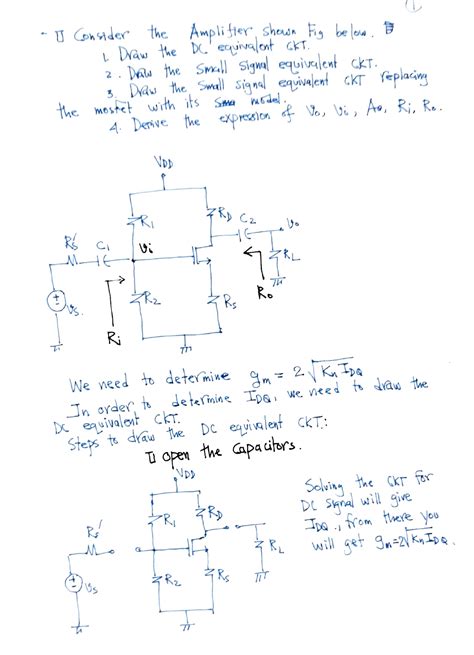 1
- 1] Consider the Amplifier shown Fig below.
1. Draw the DC equivalent CKT.
2. Draw the Small Signal equivalent CKT.
3. Draw the small signal equivalent CKT replacing
the mosfet with its model.
4. Derive the expression of vo, vi, Av, Ri, Ro.
VDD
R1
RD
C2
vo
Rs'
C1
vi
RL
vs.
R2
Rs
Ro
Ri
We need to determine gm = 2√KnIDQ
In order to determine IDQ, we need to draw the
DC equivalent CKT.
Steps to draw the DC equivalent CKT:
1] open the Capacitors.
VDD
Solving the CKT for
DC signal will give
IDQ., from there you
will get gm=2√KnIDQ.
R1
RD
Rs'
RL
vs
R2
Rs